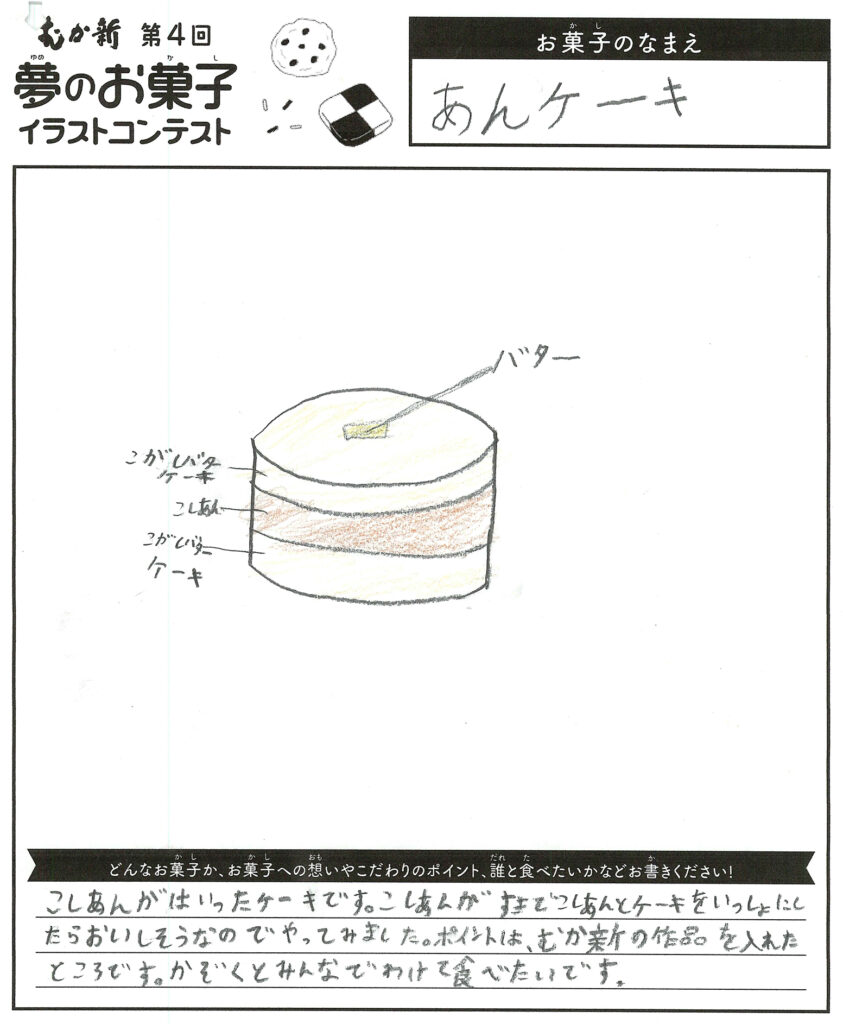 むか新 第4回
夢のお菓子
ゆめ か し
イラストコンテスト
お菓子のなまえ
か し
あんケーキ
バター
こがしバター
ケーキ
こしあん
こがしバター
ケーキ
どんなお菓子か、お菓子への想いやこだわりのポイント、誰と食べたいかなどお書きください!
か し か し おも だれ た か
こしあんがはいったケーキです。こしあんがすきでこしあんとケーキをいっしょにし
たらおいしそうなのでやってみました。ポイントは、むか新の作品を入れた
ところです。かぞくとみんなでわけて食べたいです。